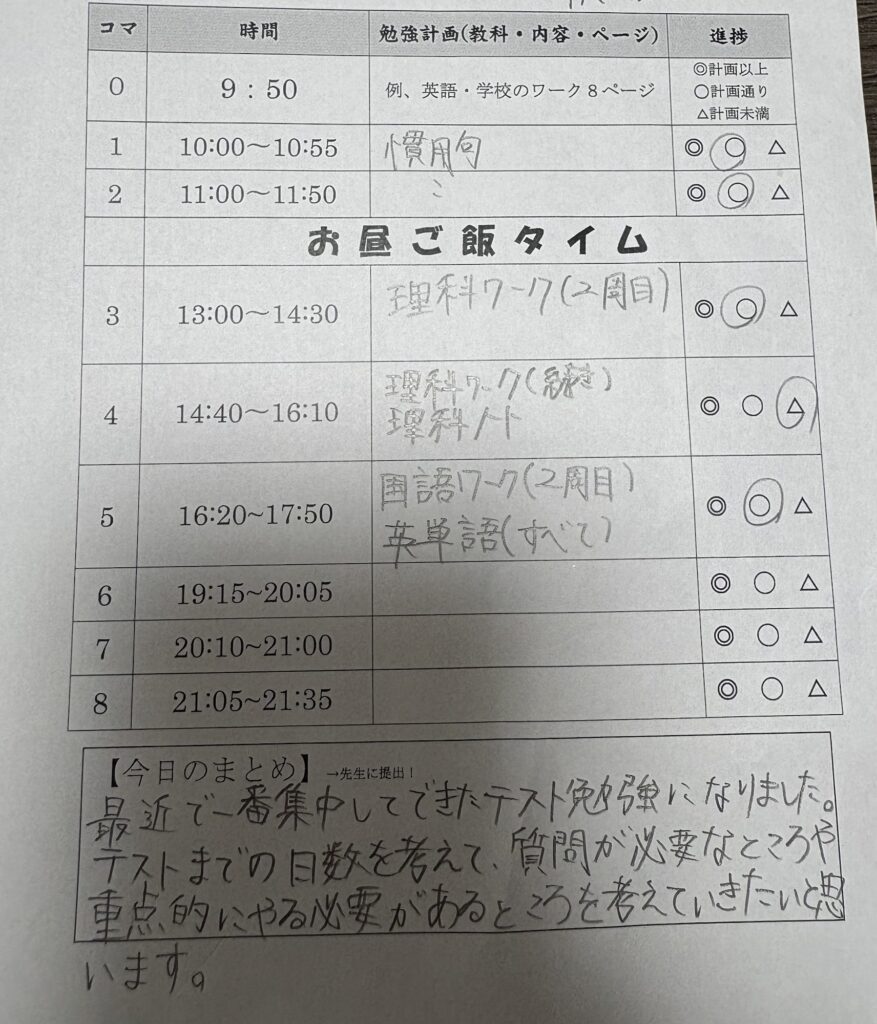 コマ 時間 勉強計画(教科・内容・ページ) 進捗
0 9：50 例、英語・学校のワーク８ページ ◎計画以上
○計画通り
△計画未満
1 10:00～10:55 慣用句 ◎ ○ △
2 11:00～11:50 〃 ◎ ○ △
お昼ご飯タイム
3 13:00～14:30 理科ワーク(2周目) ◎ ○ △
4 14:40～16:10 理科ワーク(続き) ◎ ○ △
理科ノート
5 16:20~17:50 国語ワーク(2周目) ◎ ○ △
英単語(すべて)
6 19:15~20:05 ◎ ○ △
7 20:10~21:00 ◎ ○ △
8 21:05~21:35 ◎ ○ △
【今日のまとめ】→先生に提出！
最近で一番集中してできたテスト勉強になりました。
テストまでの日数を考えて、質問が必要なところや
重点的にやる必要があるところを考えていきたいと思
います。